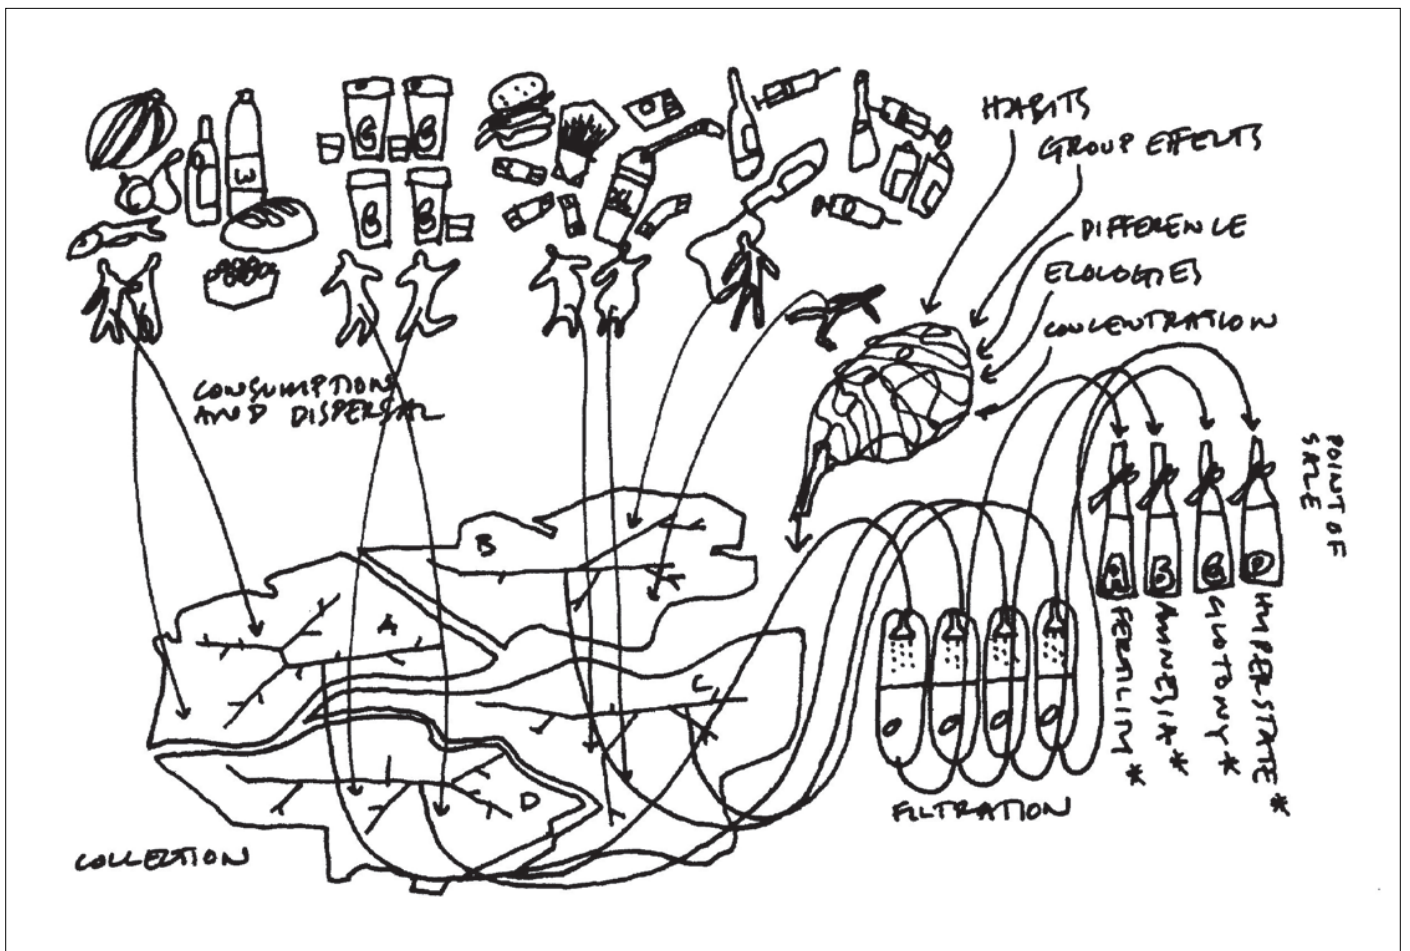 W
B B
B B
XL
HABITS
GROUP EFFECTS
DIFFERENCE
ECOLOGIES
CONCENTRATION
CONSUMPTION
AND DISPERSAL
POINT OF
SALE
B
A
C
D
AMNESIA *
GLUTONY *
HYPERSTATE *
FILTRATION
COLLECTION